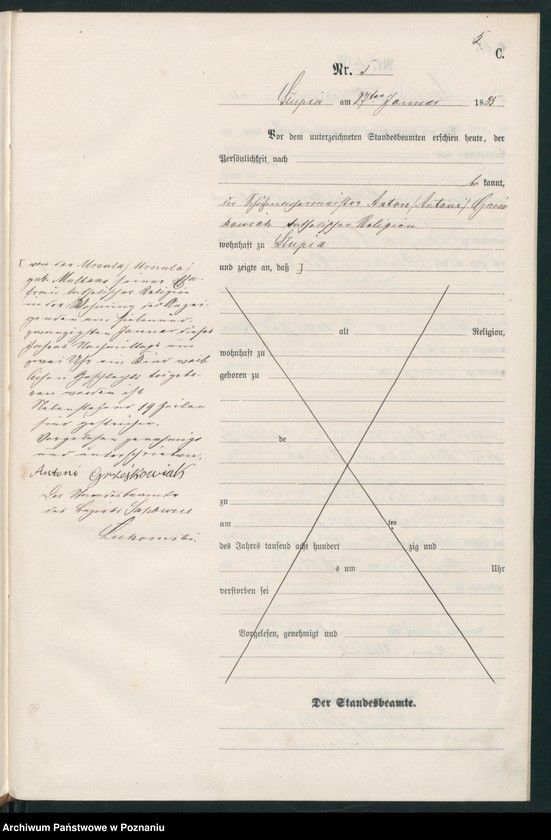 5.
C.
Nr. 5
Slupia am 27ten Januar 1885
Vor dem unterzeichneten Standesbeamten erschien heute, der
Persönlichkeit nach
be kannt,
der Schuhmachermeister Anton /Antoni/ Grześ
kowiak katholischer Religion
wohnhaft zu Slupia
und zeigte an, daß ]
[ von der Ursula /Urszula/
geb. Mullak seiner Ehe-
frau katholischer Religion
in der Wohnung des Anzei-
genden am siebenund
zwanzigsten Januar dieses
Jahres Nachmittags um
zwei Uhr ein Kind weib-
lichen Geschlechts todgebo-
ren worden ist
Nebenstehend 19 Zeilen
sind gestrichen.
Vorgelesen genehmigt
und unterschrieben.
Antoni Grześkowiak
Der Standesbeamte
des Bezirks
Lukomski
alt Religion,
wohnhaft zu
geboren zu
de
zu
am ten
des Jahres tausend acht hundert zig und
s um Uhr
verstorben sei
Vorgelesen, genehmigt und
Der Standesbeamte.
Archiwum Państwowe w Poznaniu